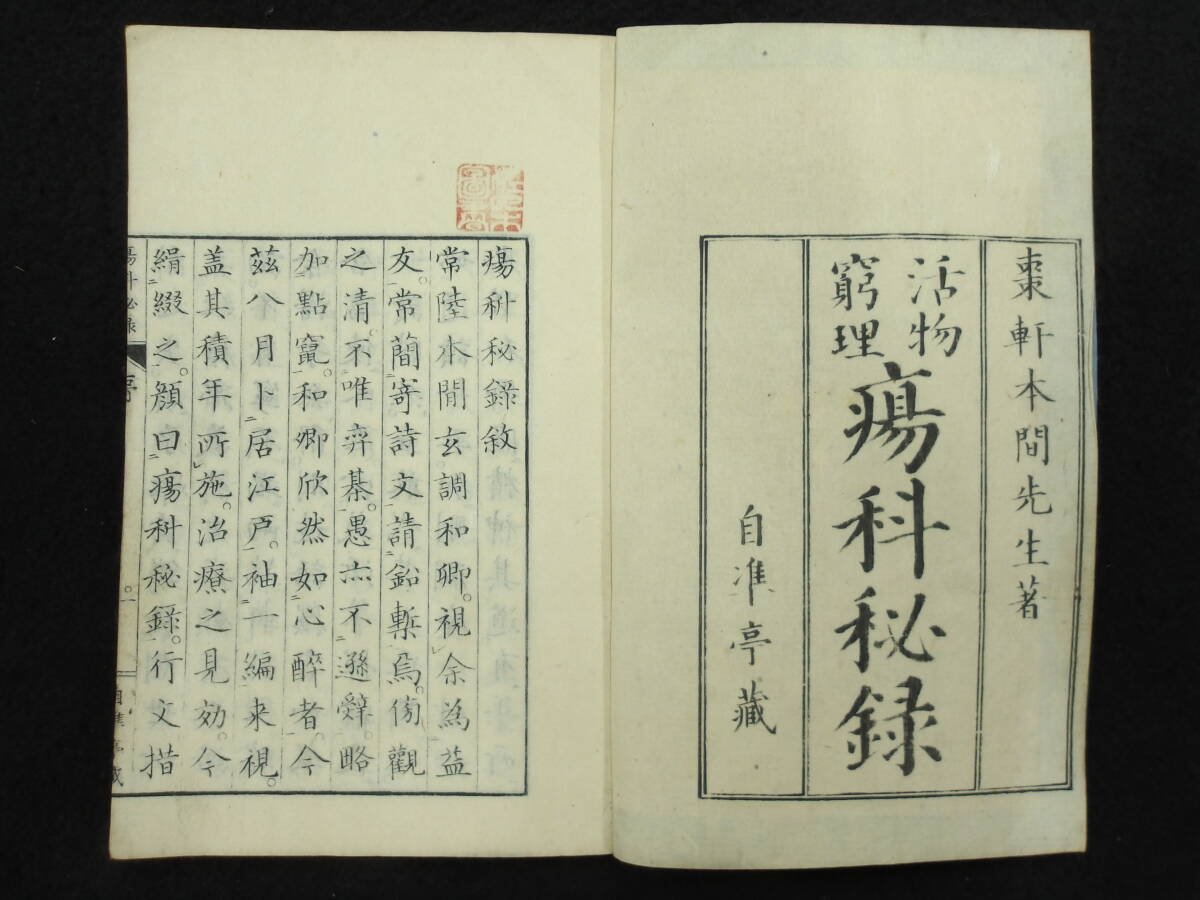 棗軒本間先生著
活物
窮理
瘍科秘録
自準亭藏
瘍科秘録敘
常陸本間玄調和卿。視余為益
友。常簡寄詩文請鉛槧焉。傍觀
之清。不唯弈棊。愚亦不遜辤。略
加點竄。和卿欣然如心醉者。今
茲八月卜居江戸。袖一編来視。
蓋其積年所施。治療之見効。今
緝綴之。顔曰瘍科秘録。行文措
瘍科秘録
序
一
自準亭藏